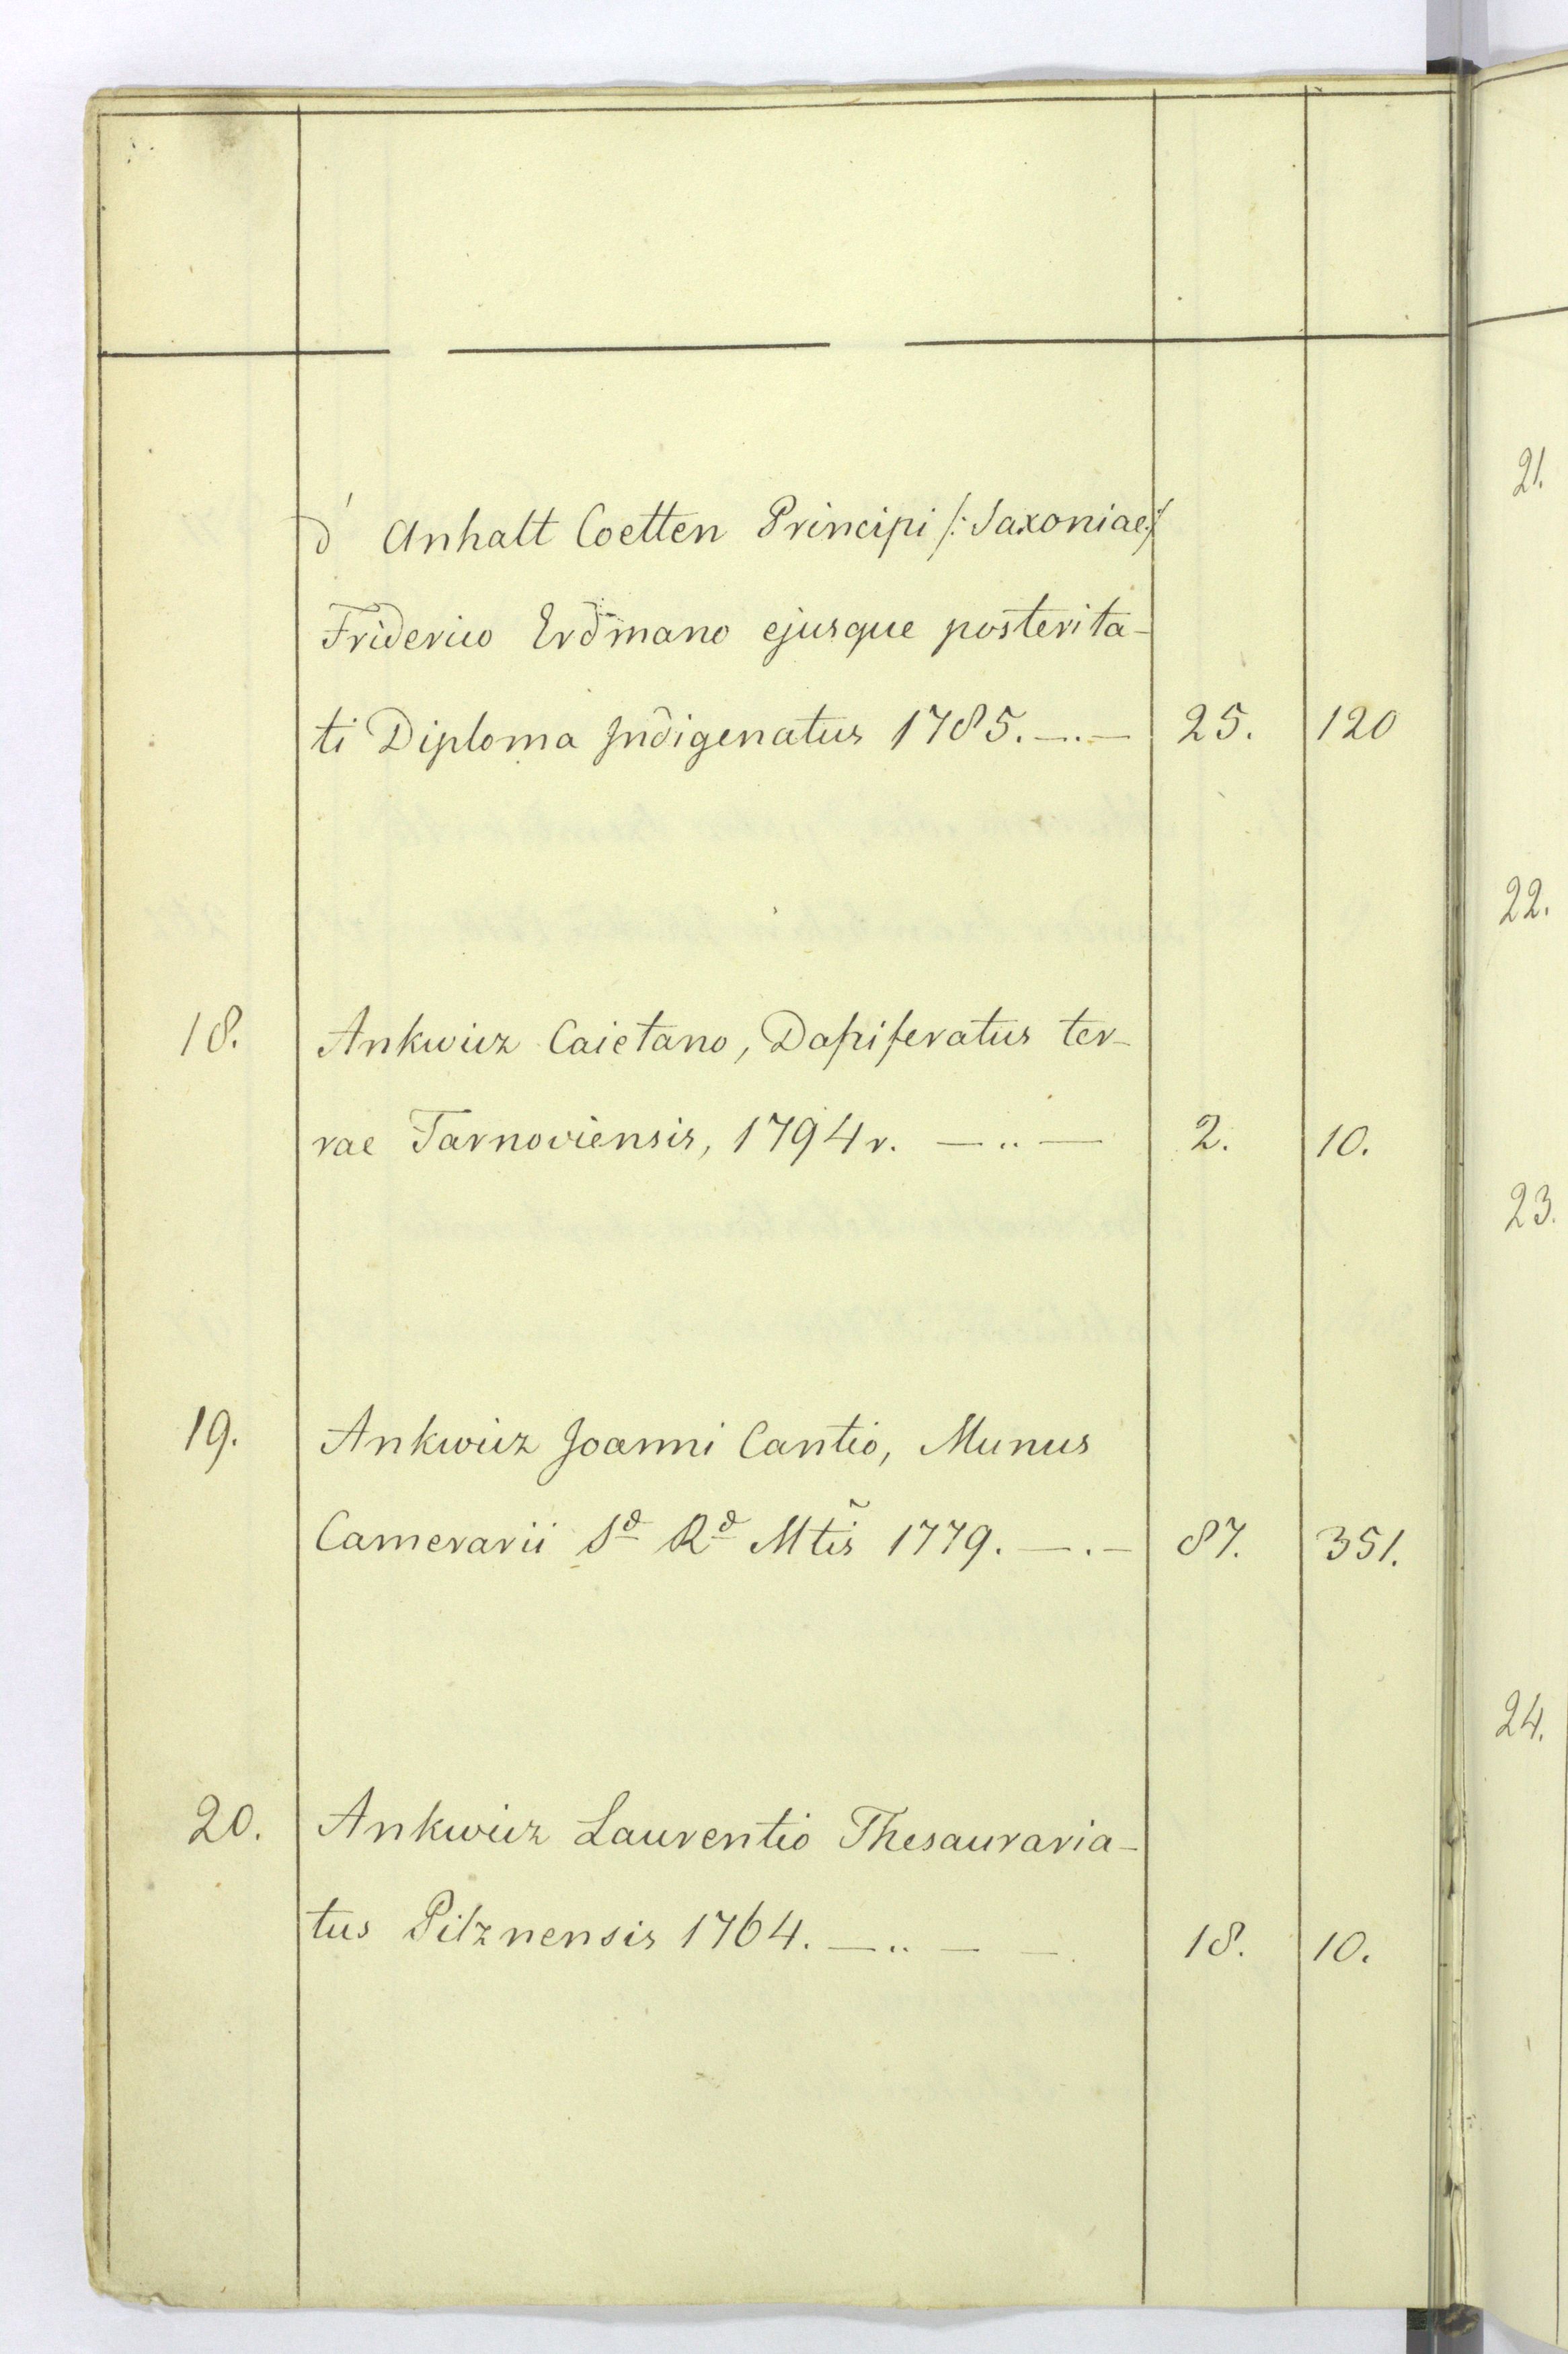 d' Anhalt Coetten Principi /: Saxoniae :/
Friderico Erdmano ejusque posterita-
ti Diploma Indigenatus 1785. —.— 25. 120
18. Ankwicz Caietano, Dapiferatus ter-
rae Tarnoviensis, 1794 r. — .. — 2. 10.
19. Ankwicz Joanni Cantio, Munus
Camerarii Sæ Ræ Mtis̃ 1779. —.— 87. 351.
20. Ankwicz Laurentio Thesauraria-
tus Pilznensis 1764. — .. — — 18. 10.
21.
22.
23.
24.